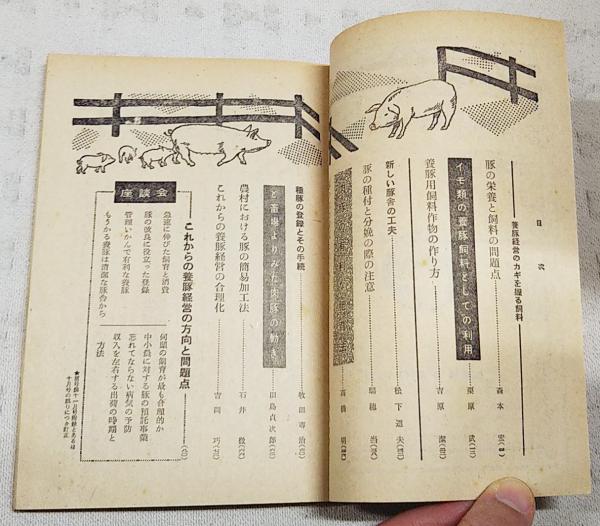 目次
養豚経営のカギを握る飼料
豚の栄養と飼料の問題点 森本 宏
イモ類の養豚飼料としての利用 栗原 武
養豚用飼料作物の作り方 吉原 潔
新しい豚舎の工夫 松下道夫
豚の種付と分娩の際の注意 瑞穂 当
高橋 明
種豚の登録とその手続
と畜場よりみた肉豚の動き 田島貞次郎
農村における豚の簡易加工法 石井 徹
これからの養豚経営の合理化 吉岡 巧
座談会
これからの養豚経営の方向と問題点
急速に伸びた飼育と消費
豚の改良に役立った登録
管理いかんで有利な養豚
もうかる養豚は清潔な豚舎から
何頭の飼育が最も合理的か
中小農に対する豚の預託事業
忘れてならない病気の予防
収入を左右する出荷の時期と
方法